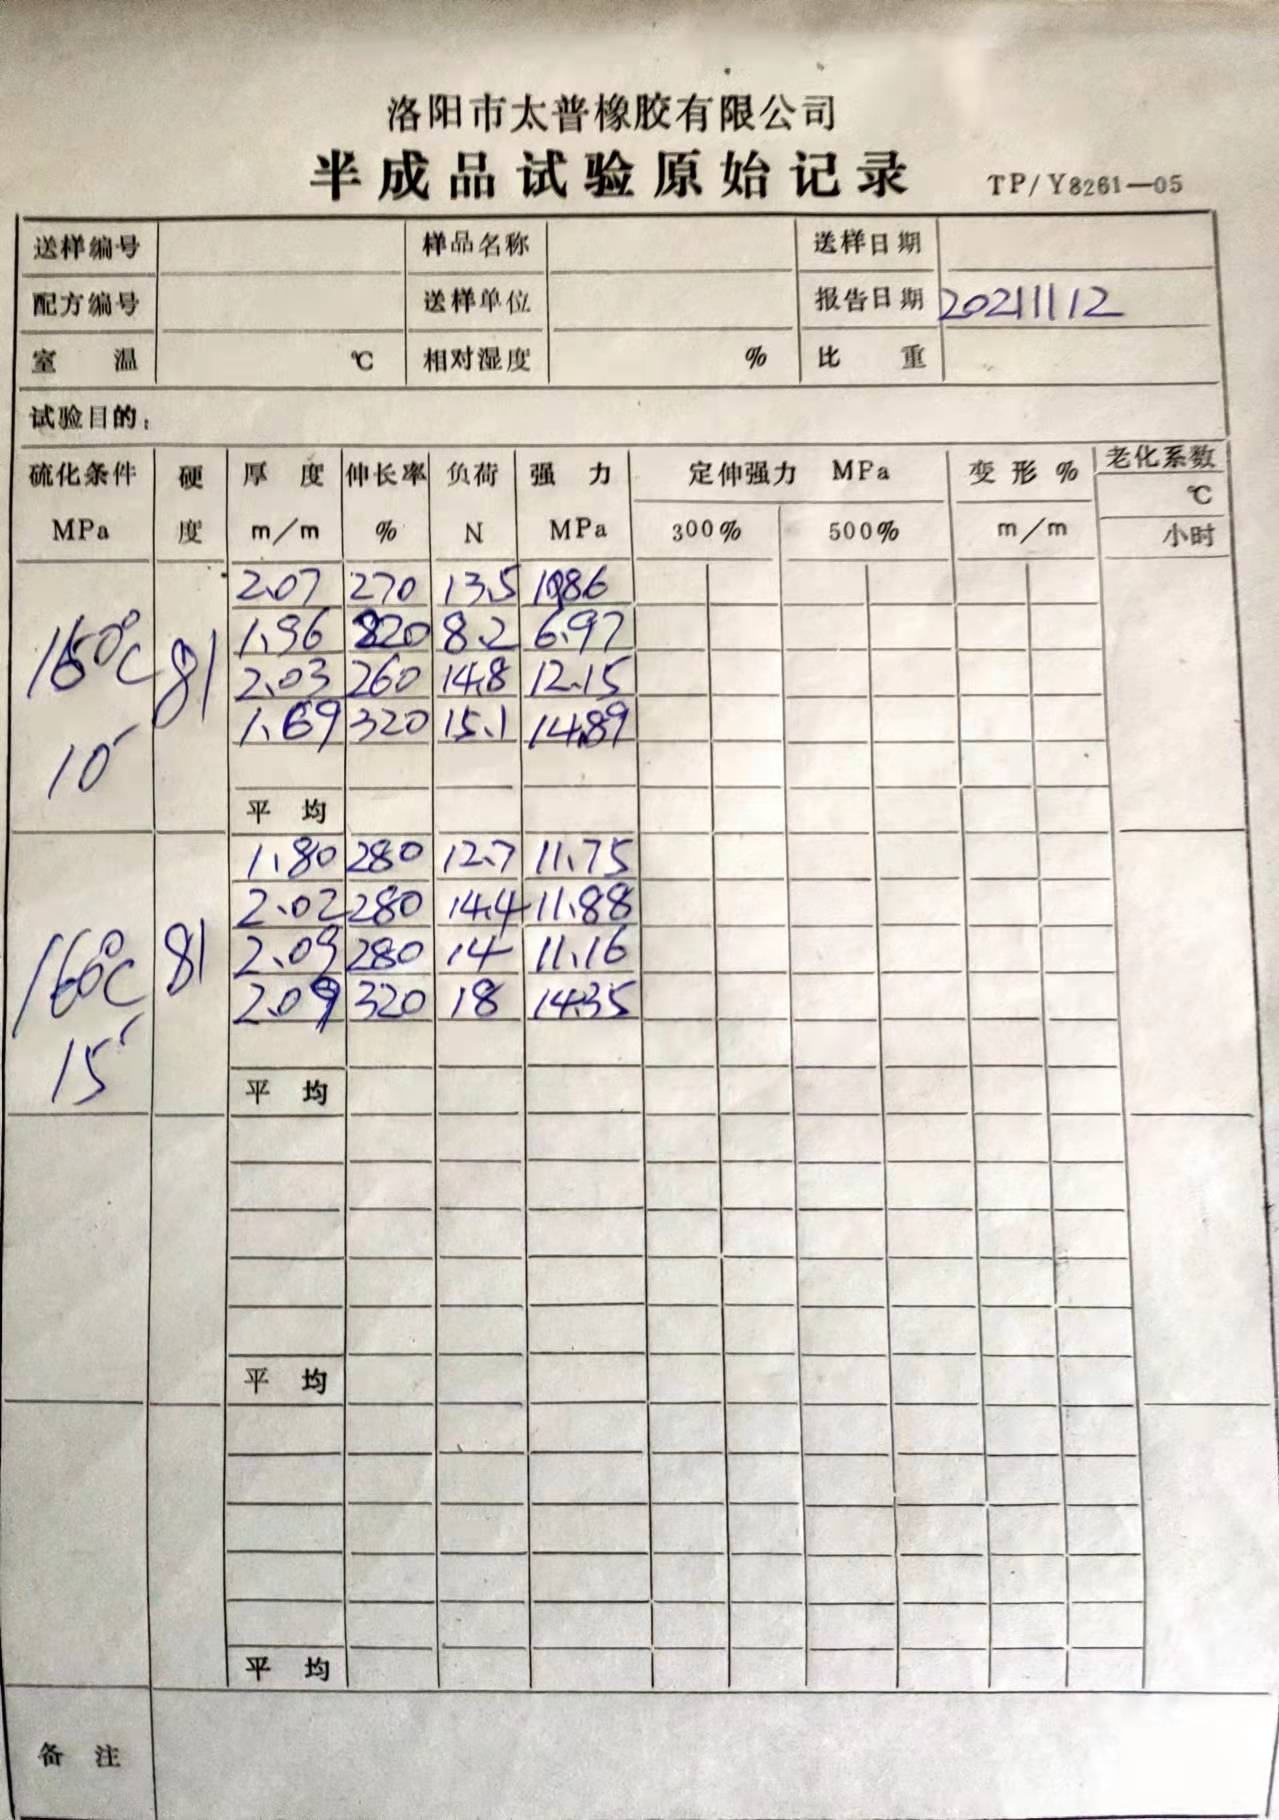 洛阳市太普橡胶有限公司
半成品试验原始记录 TP/Y8261—05
送样编号 样品名称 送样日期
配方编号 送样单位 报告日期 20211112
室 温 ℃ 相对湿度 % 比 重
试验目的:
硫化条件 硬 厚 度 伸长率 负荷 强 力 定伸强力 MPa 变形 % 老化系数
℃
MPa 度 m/m % N MPa 300% 500% m/m 小时
2.07 270 13.5 10.86
1.96 8.2 6.97
81 2.03 260 14.8 12.15
1.69 320 15.1 14.89
10′
平 均
1.80 280 12.7 11.75
2.02 280 14.4 11.88
160℃ 81 2.09 280 14 11.16
2.09 320 18 14.35
15′
平 均
平 均
平 均
备 注